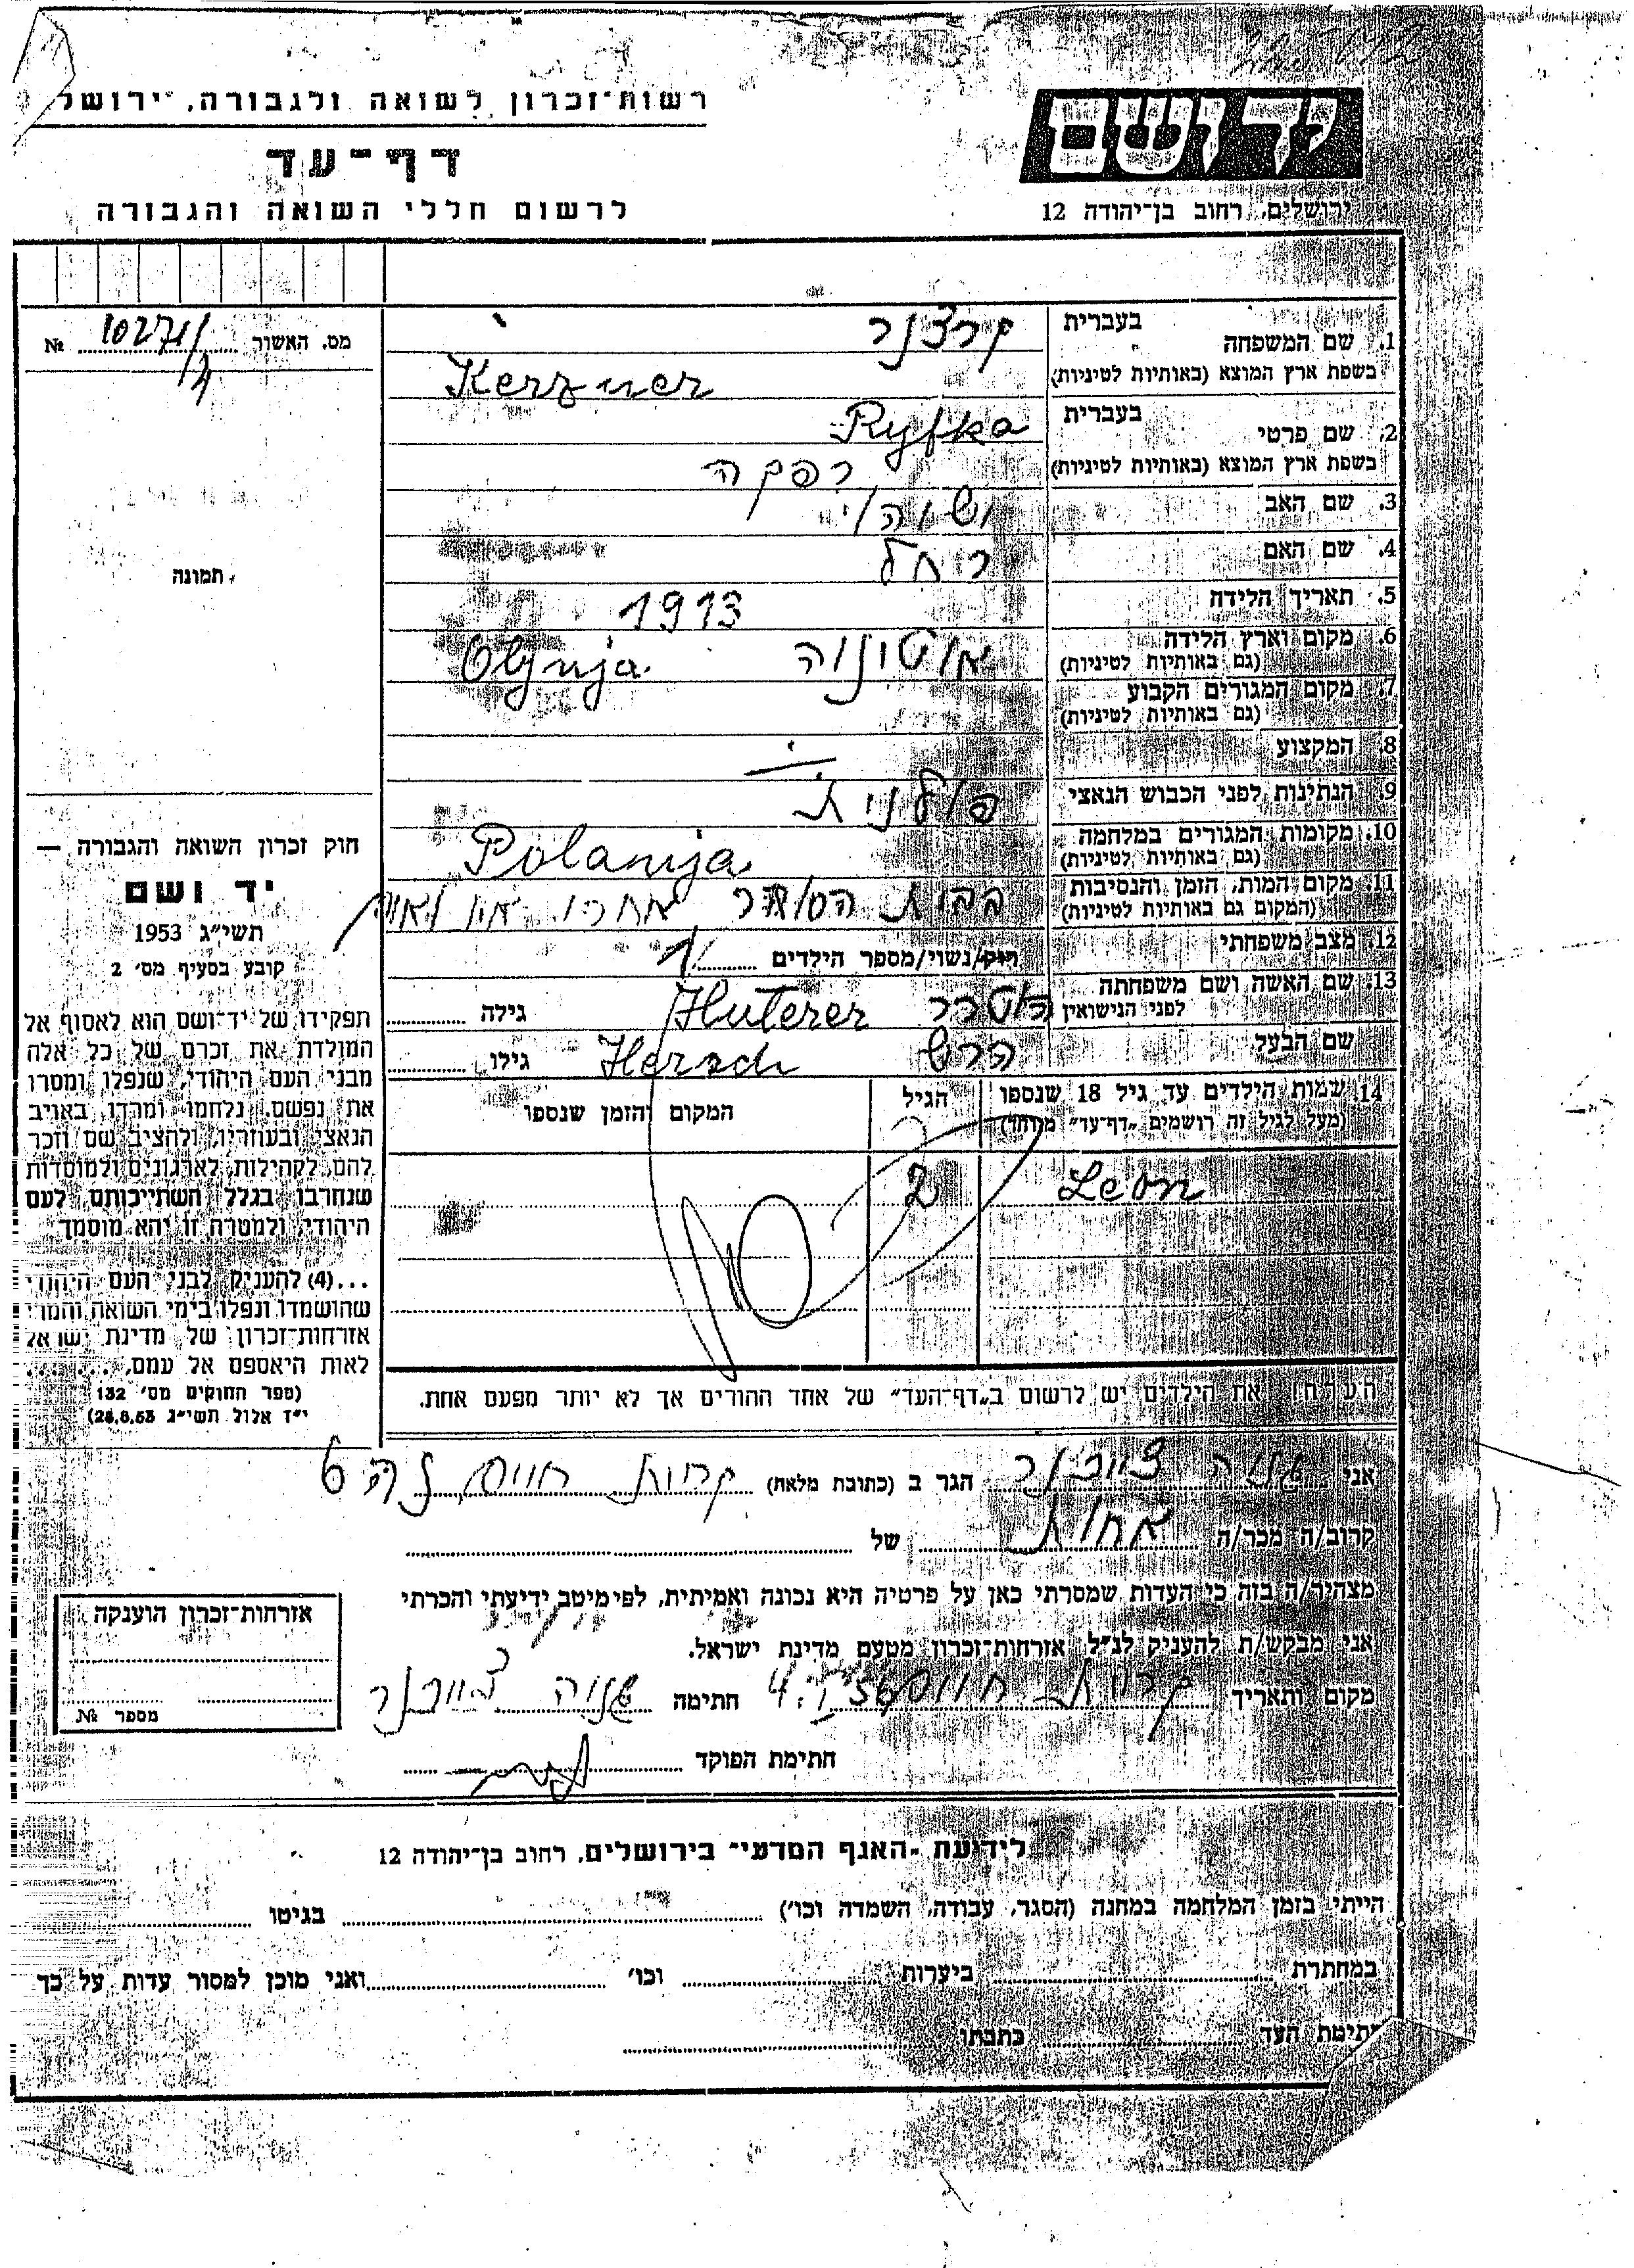 רשות־זכרון לשואה ולגבורה, ירושל
יד ושם
דף־עד
לרשום חללי השואה והגבורה
ירושלים, רחוב בן־יהודה 12
מס. האשור № 10271/
1. שם המשפחה בעברית קרצנר
בשפת ארץ המוצא (באותיות לטיניות) Kerzner
2. שם פרטי בעברית Ryfka
בשפת ארץ המוצא (באותיות לטיניות) רפקה
3. שם האב
4. שם האם רחל
תמונה
5. תאריך הלידה 1913
6. מקום וארץ הלידה
(גם באותיות לטיניות)
7. מקום המגורים הקבוע
(גם באותיות לטיניות)
8. המקצוע
9. הנתינות לפני הכבוש הנאצי פולנית
10. מקומות המגורים במלחמה Polanija
(גם באותיות לטיניות)
11. מקום המות, הזמן והנסיבות
(המקום גם באותיות לטיניות)
12. מצב משפחתי רוק/נשוי/מספר הילדים 1
13. שם האשה ושם משפחתה
לפני הנישואין הוטרר Huterer גילה
שם הבעל הרש Hersch גילו
14. שמות הילדים עד גיל 18 שנספו הגיל המקום והזמן שנספו
(מעל לגיל זה רושמים „דף־עד״ מיוחד)
Leon 2
הערה: את הילדים יש לרשום ב„דף־העד״ של אחד ההורים אך לא יותר מפעם אחת.
חוק זכרון השואה והגבורה —
יד ושם
תשי״ג 1953
קובע בסעיף מס׳ 2
תפקידו של יד־ושם הוא לאסוף אל
המולדת את זכרם של כל אלה
מבני העם היהודי, שנפלו ומסרו
את נפשם, נלחמו ומרדו באויב
הנאצי ובעוזריו, ולהציב שם וזכר
להם, לקהילות, לארגונים ולמוסדות
שנחרבו בגלל השתייכותם לעם
היהודי, ולמטרה זו יהא מוסמך
...(4) להעניק לבני העם היהודי
שהושמדו ונפלו בימי השואה והמרי
אזרחות־זכרון של מדינת ישראל
לאות היאספם אל עמם,
(ספר החוקים מס׳ 132
י״ז אלול תשי״ג 28.8.53)
אני הגר ב (כתובת מלאה) קרית חיים
קרוב/ה מכר/ה אחות של
מצהיר/ה בזה כי העדות שמסרתי כאן על פרטיה היא נכונה ואמיתית, לפי מיטב ידיעתי והכרתי
אני מבקש/ת להעניק לנ״ל אזרחות־זכרון מטעם מדינת ישראל.
מקום ותאריך קרית חיים חתימה
חתימת הפוקד
אזרחות־זכרון הוענקה
מספר №
לידיעת „האגף המדעי״ בירושלים, רחוב בן־יהודה 12
הייתי בזמן המלחמה במחנה (הסגר, עבודה, השמדה וכו׳) בגיטו
במחתרת ביערות וכו׳ ואני מוכן למסור עדות על כך
חתימת העד כתבתו